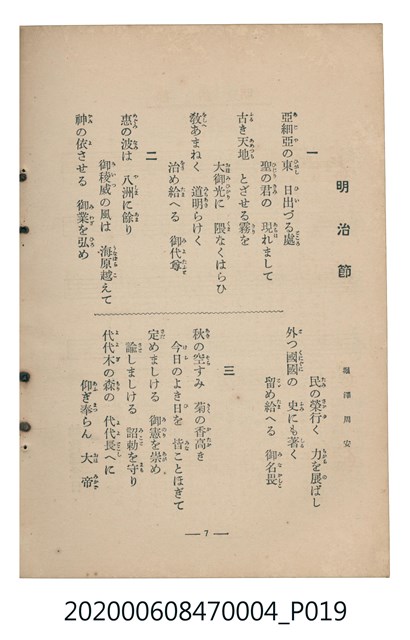 明治節
堀澤周安
一
亞細亞の東 日出づる處
聖の君の 現れまして
古き天地 とざせる霧を
大御光に 隈なくはらひ
敎あまねく 道明らけく
治め給へる 御代尊
二
惠の波は 八洲に餘り
御稜威の風は 海原越えて
神の依させる 御業を弘め
民の榮行く 力を展ばし
外つ國國の 史にも著く
留め給へる 御名畏
三
秋の空すみ 菊の香高き
今日のよき日を 皆ことほぎて
定めましける 御憲を崇め
諭しましける 詔勅を守り
代代木の森の 代代長へに
仰ぎ奉らん 大帝
― 7 ―
202000608470004_P019